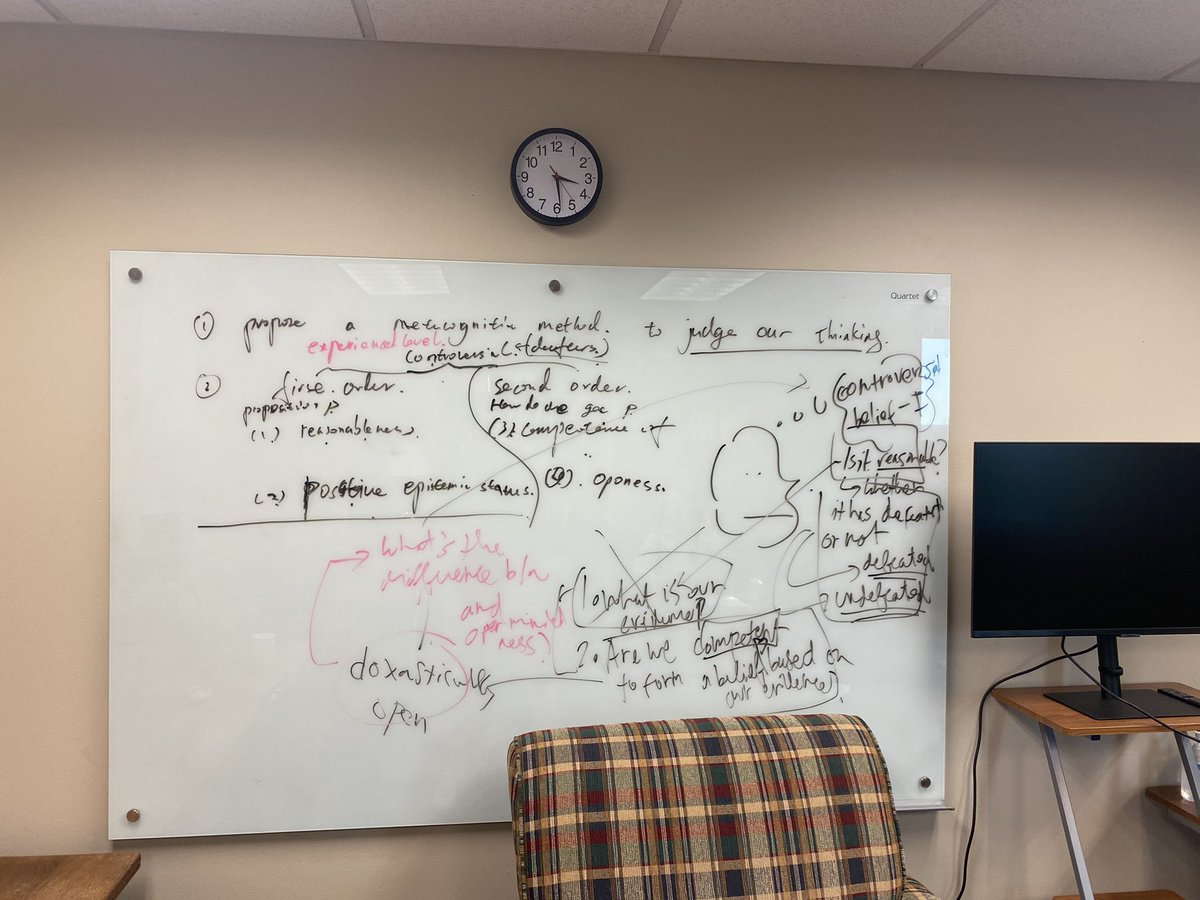 12
1
2
3
4
5
6
7
8
9
10
11
Quartet
① propose a metecognitin method. to judge our thinking.
experienced level.
controversia
② first order.
(1) reasonableness
(2) positive epistemic status.
second order.
How do we
(3) competence of
(4) oponess.
controversial
belief - I
- Is it reasonable?
whether
it has defeaters
or not
defeated
undefeated
What's the
difference b/n
and
open minded
ness?
doxastically
open
1. What is our
evidence?
2. Are we competent
to form a belief based on
our evidence?